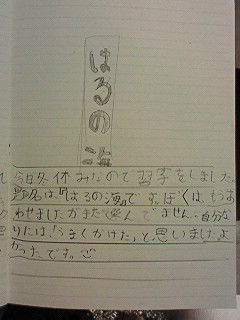 はるの海
今日冬休みなので習字をしました。
題名は「はるの海」です。ぼくは、もうお
わせましたがまだ選んでません。自分な
りには、「うまくかけた」と思いましたよ
かったです。